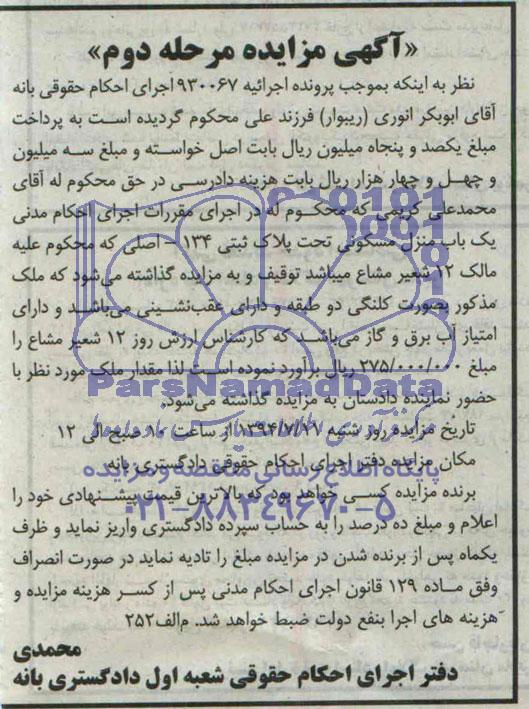 «آگهی مزایده مرحله دوم»
نظر به اینکه بموجب پرونده اجرائیه ۹۳۰۰۶۷ اجرای احکام حقوقی بانه
آقای ابوبکر انوری (ریبوار) فرزند علی محکوم گردیده است به پرداخت
مبلغ یکصد و پنجاه میلیون ریال بابت اصل خواسته و مبلغ سه میلیون
و چهل و چهار هزار ریال بابت هزینه دادرسی در حق محکوم له آقای
محمدعلی کریمی که محکوم له در اجرای مقررات اجرای احکام مدنی
یک باب منزل مسکونی تحت پلاک ثبتی ۱۳۴ – اصلی که محکوم علیه
مالک ۱۲ شعیر مشاع میباشد توقیف و به مزایده گذاشته می‌شود که ملک
مذکور بصورت کلنگی دو طبقه و دارای عقب‌نشینی می‌باشد و دارای
امتیاز آب برق و گاز می‌باشد که کارشناس ارزش روز ۱۲ شعیر مشاع را
مبلغ ۲۷۵/۰۰۰/۰۰۰ ریال برآورد نموده است لذا مقدار ملک مورد نظر با
حضور نماینده دادستان به مزایده گذاشته می‌شود.
تاریخ مزایده روز شنبه از ساعت ۱۰ صبح الی ۱۲
مکان مزایده دفتر اجرای احکام حقوقی دادگستری بانه
برنده مزایده کسی خواهد بود که بالاترین قیمت پیشنهادی خود را
اعلام و مبلغ ده درصد را به حساب سپرده دادگستری واریز نماید و ظرف
یکماه پس از برنده شدن در مزایده مبلغ را تادیه نماید در صورت انصراف
وفق ماده ۱۲۹ قانون اجرای احکام مدنی پس از کسر هزینه مزایده و
هزینه های اجرا بنفع دولت ضبط خواهد شد. م‌الف۲۵۲
محمدی
دفتر اجرای احکام حقوقی شعبه اول دادگستری بانه
ParsNamadData
پایگاه اطلاع رسانی مناقصه و مزایده
۰۲۱-۸۸۳۴۹۶۷۰-۵